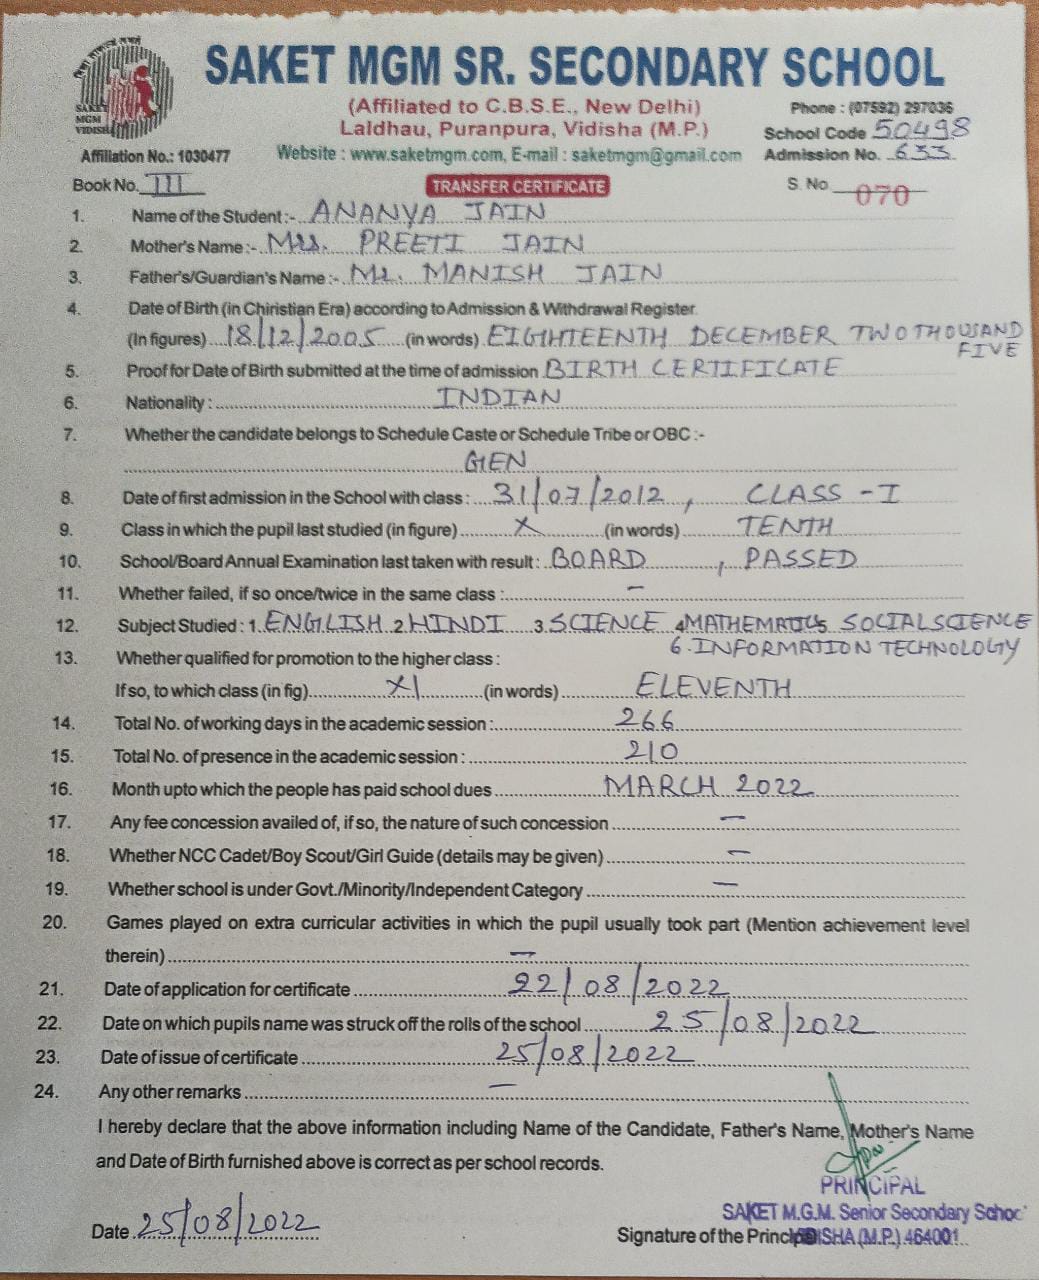 SAKET MGM SR. SECONDARY SCHOOL
SAKET
MGM
VIDISHA
(Affiliated to C.B.S.E., New Delhi)
Phone : (07592) 297036
Laldhau, Puranpura, Vidisha (M.P.)
School Code 50498
Affiliation No.: 1030477
Website : www.saketmgm.com, E-mail : saketmgm@gmail.com
Admission No. 633
Book No. III
TRANSFER CERTIFICATE
S. No 070
1. Name of the Student :- ANANYA JAIN
2. Mother's Name :- Mrs. PREETI JAIN
3. Father's/Guardian's Name :- Mr. MANISH JAIN
4. Date of Birth (in Chiristian Era) according to Admission & Withdrawal Register.
(In figures) 18/12/2005 (in words) EIGHTEENTH DECEMBER TWO THOUSAND
FIVE
5. Proof for Date of Birth submitted at the time of admission BIRTH CERTIFICATE
6. Nationality : INDIAN
7. Whether the candidate belongs to Schedule Caste or Schedule Tribe or OBC :-
GEN
8. Date of first admission in the School with class : 31/07/2012, CLASS - I
9. Class in which the pupil last studied (in figure) X (in words) TENTH
10. School/Board Annual Examination last taken with result : BOARD, PASSED
11. Whether failed, if so once/twice in the same class : -
12. Subject Studied : 1. ENGLISH 2. HINDI 3. SCIENCE 4. MATHEMATICS 5. SOCIAL SCIENCE
6. INFORMATION TECHNOLOGY
13. Whether qualified for promotion to the higher class :
If so, to which class (in fig) XI (in words) ELEVENTH
14. Total No. of working days in the academic session : 266
15. Total No. of presence in the academic session : 210
16. Month upto which the people has paid school dues MARCH 2022
17. Any fee concession availed of, if so, the nature of such concession -
18. Whether NCC Cadet/Boy Scout/Girl Guide (details may be given) -
19. Whether school is under Govt./Minority/Independent Category -
20. Games played on extra curricular activities in which the pupil usually took part (Mention achievement level
therein) -
21. Date of application for certificate 22/08/2022
22. Date on which pupils name was struck off the rolls of the school 25/08/2022
23. Date of issue of certificate 25/08/2022
24. Any other remarks -
I hereby declare that the above information including Name of the Candidate, Father's Name, Mother's Name
and Date of Birth furnished above is correct as per school records.
PRINCIPAL
SAKET M.G.M. Senior Secondary School
Date 25/08/2022
Signature of the Principal
VIDISHA (M.P.) 464001